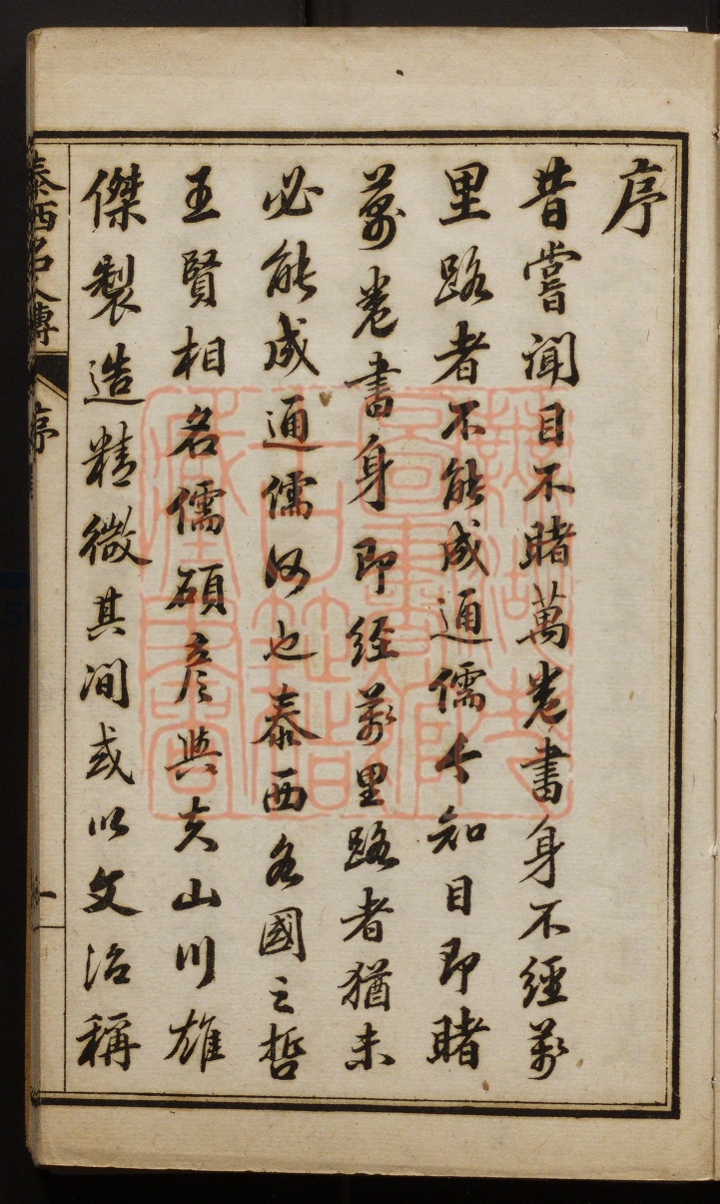 序
昔嘗聞目不睹萬卷書身不經萬
里路者不能成通儒今知目即睹
萬卷書身即經萬里路者猶未
必能成通儒何也泰西各國之哲
王賢相名儒碩彥與夫山川雄
傑製造精微其间或以文治稱
泰西名人傳
序
一